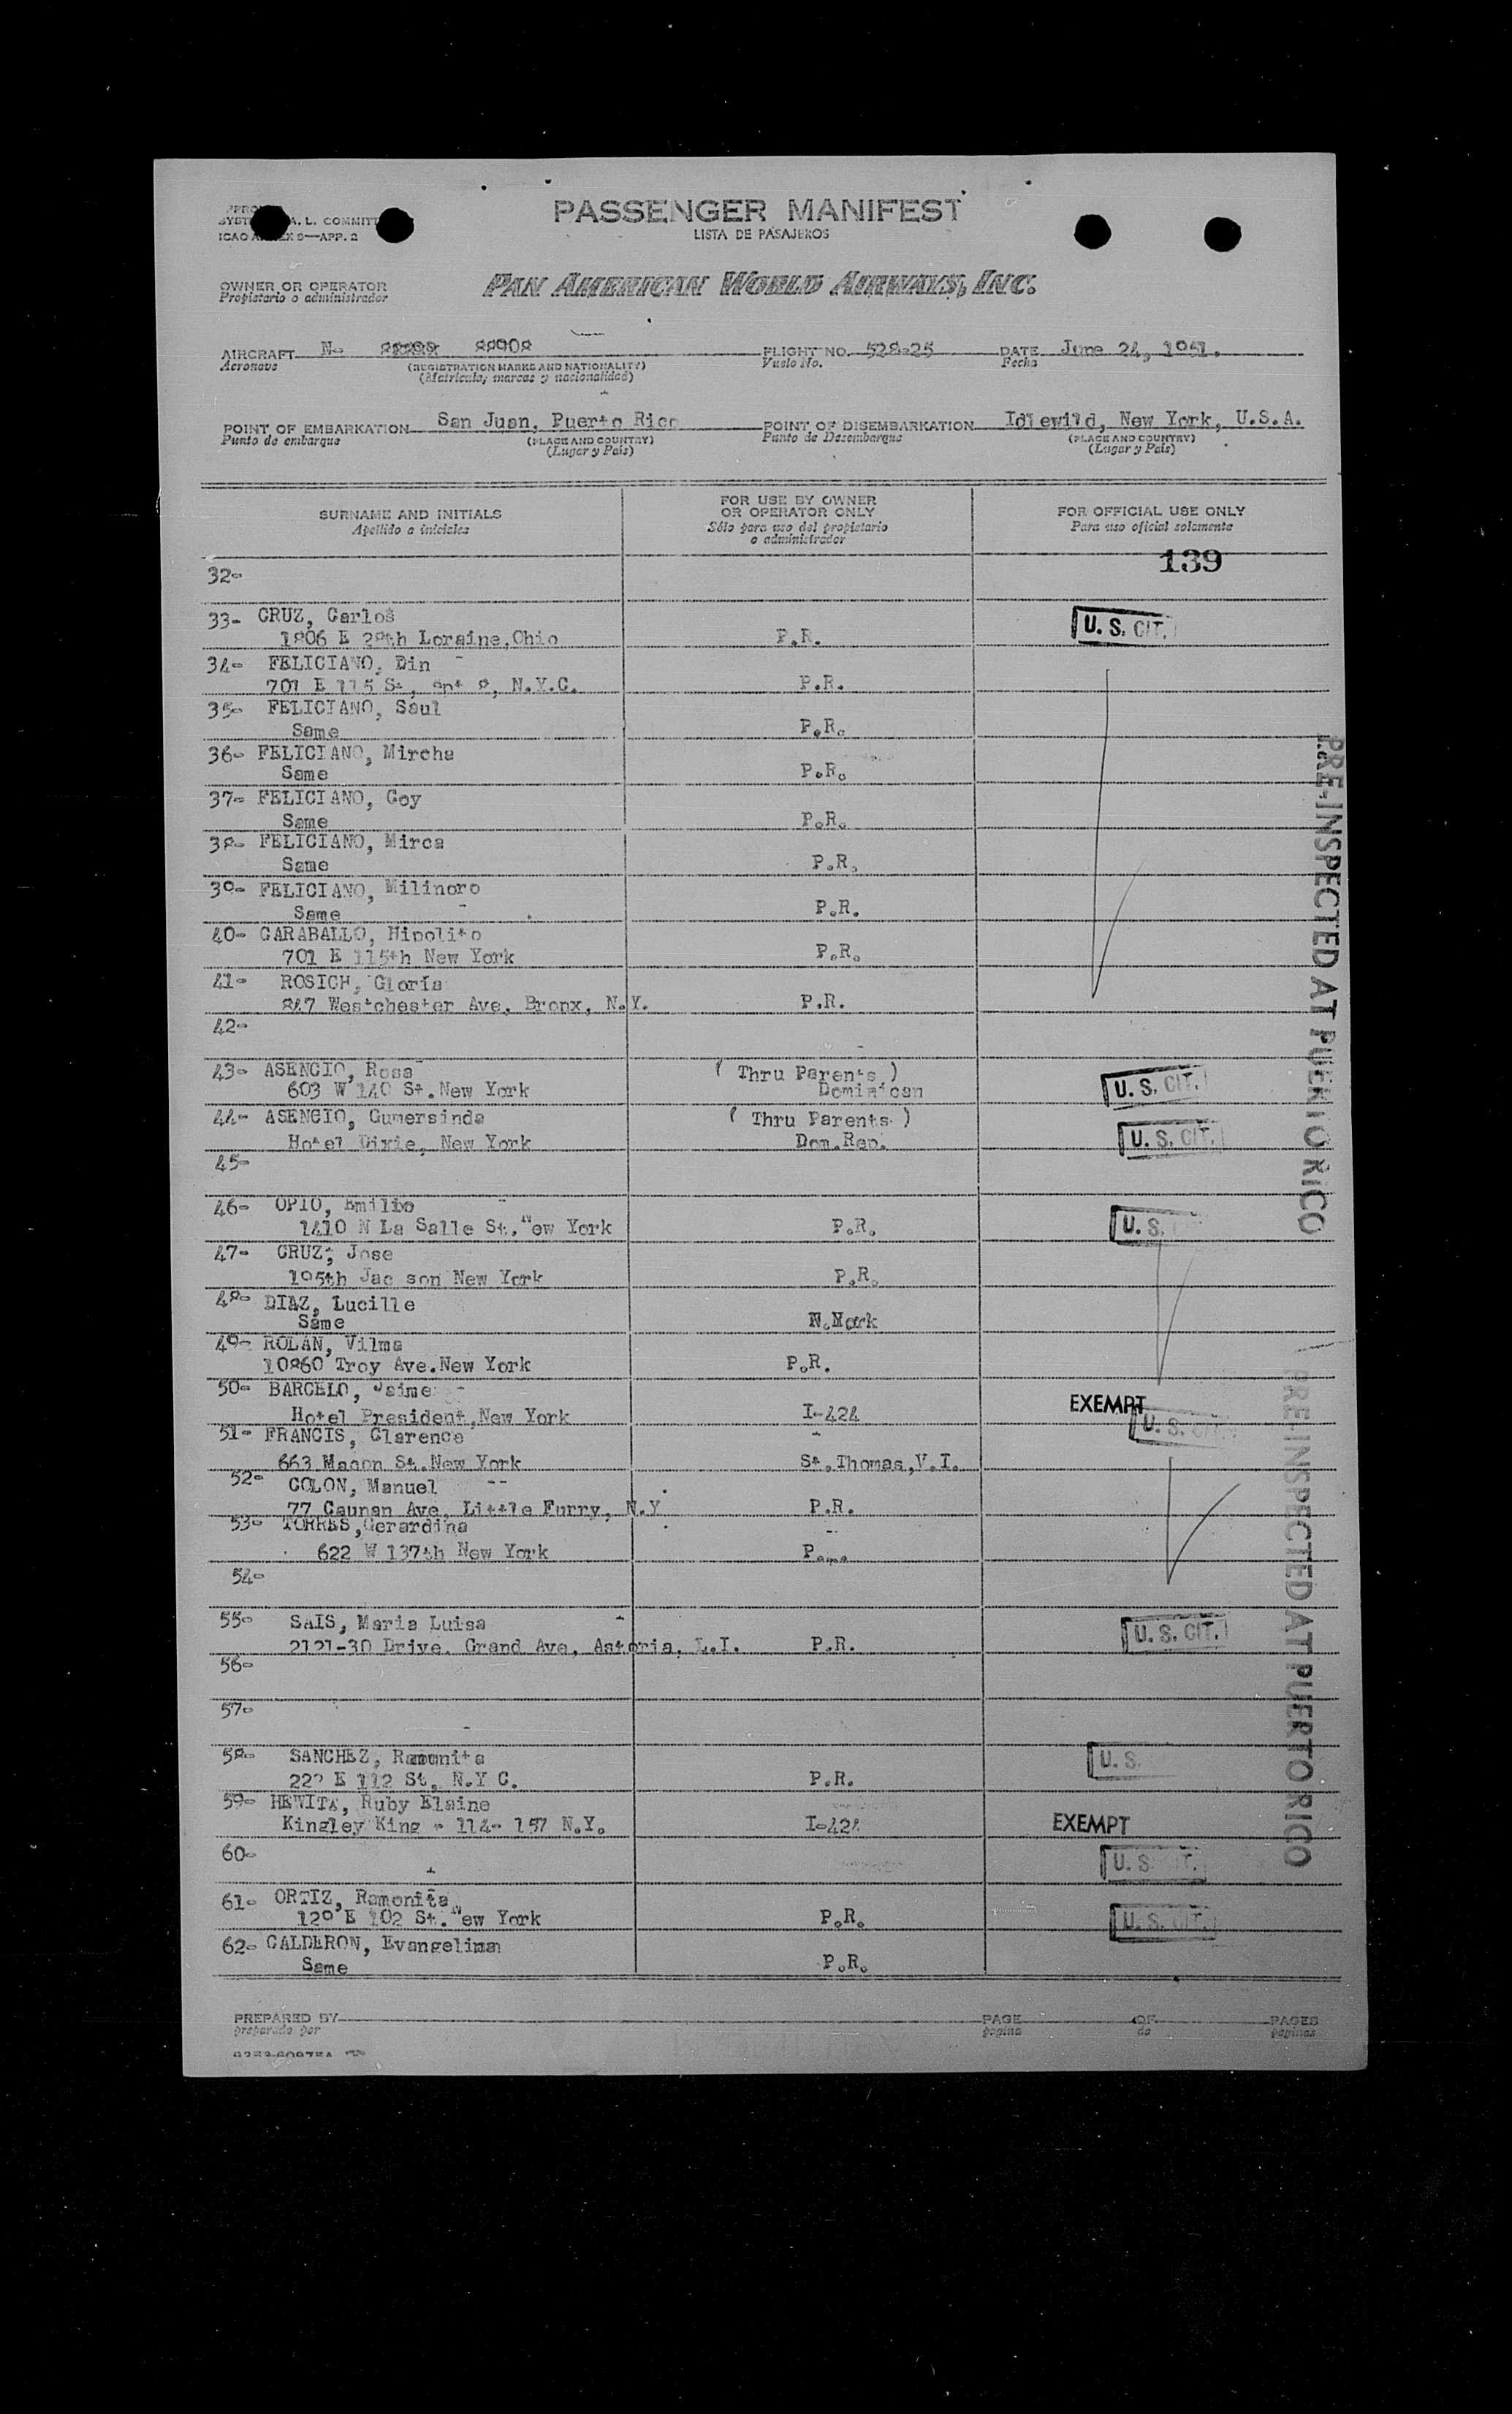 PASSENGER MANIFEST
LISTA DE PASAJEROS
A. L. COMMITT
ICAO ANNEX 9—APP. 2
OWNER OR OPERATOR
Propietario o administrador
PAN AMERICAN WORLD AIRWAYS, INC.
AIRCRAFT N- 88908 FLIGHT NO. 528-25 DATE June 24, 1951.
Aeronave (REGISTRATION MARKS AND NATIONALITY) Vuelo No. Fecha
(Matricula, marcas y nacionalidad)
POINT OF EMBARKATION San Juan, Puerto Rico POINT OF DISEMBARKATION Idlewild, New York, U.S.A.
Punto de embarque (PLACE AND COUNTRY) Punto de Desembarque (PLACE AND COUNTRY)
(Lugar y País) (Lugar y País)
SURNAME AND INITIALS
Apellido a iniciales
FOR USE BY OWNER
OR OPERATOR ONLY
Sólo para uso del propietario
o administrador
FOR OFFICIAL USE ONLY
Para uso oficial solamente
139
32-
33- CRUZ, Carlos
1806 E 28th Loraine,Ohio P.R. U. S. CIT.
34- FELICIANO, Din
701 E 115 St, apt 8, N.Y.C. P.R.
35- FELICIANO, Saul
Same P.R.
36- FELICIANO, Mircha
Same P.R.
37- FELICIANO, Goy
Same P.R.
38- FELICIANO, Mirca
Same P.R.
39- FELICIANO, Milinoro
Same P.R.
40- CARABALLO, Hipolito
701 E 115th New York P.R.
41- ROSICH, Gloria
847 Westchester Ave, Bronx, N.Y. P.R.
42-
43- ASENCIO, Rosa ( Thru Parents )
603 W 140 St. New York Dominican U. S. CIT.
44- ASENCIO, Gumersinda ( Thru Parents )
Hotel Dixie, New York Dom.Rep. U. S. CIT.
45-
46- OPIO, Emilio
1410 N La Salle St. New York P.R. U. S.
47- CRUZ, Jose
195th Jac son New York P.R.
48- DIAZ, Lucille
Same N.York
49- ROLAN, Vilma
10860 Troy Ave.New York P.R.
50- BARCELO, Jaime
Hotel President,New York I-424 EXEMPT
51- FRANCIS, Clarence U. S. CIT.
663 Macon St.New York St.Thomas,V.I.
52- COLON, Manuel
77 Caunan Ave, Little Furry, N.Y P.R.
53- TORRES,Gerardina
622 W 137th New York
54-
55- SAIS, Maria Luisa
2121-30 Drive. Grand Ave, Astoria, L.I. P.R. U. S. CIT.
56-
57-
58- SANCHEZ, Ramonita
222 E 112 St, N.Y C. P.R. U. S.
59- HEWITA, Ruby Elaine
Kingley King - 114- 157 N.Y. I-424 EXEMPT
60- U. S. CIT.
61- ORTIZ, Ramonita
129 E 102 St. New York P.R. U. S. CIT.
62- CALDERON, Evangelina
Same P.R.
PRE-INSPECTED AT PUERTO RICO
PRE-INSPECTED AT PUERTO RICO
PREPARED BY PAGE OF PAGES
preparado por pagina de paginas